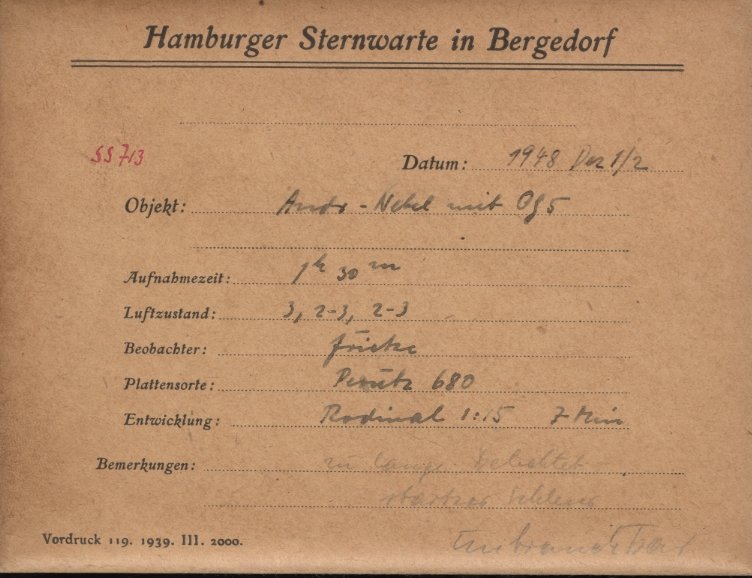 Hamburger Sternwarte in Bergedorf
SS 713
Datum: 1948 Dez 1/2
Objekt: Andr-Nebel mit OG5
Aufnahmezeit: 1h 30m
Luftzustand: 3, 2-3, 2-3
Beobachter: Fricke
Plattensorte: Perutz 680
Entwicklung: Rodinal 1:15 7 Min
Bemerkungen: zu lange belichtet
starker Schleier
Unbrauchbar
Vordruck 119. 1939. III. 2000.